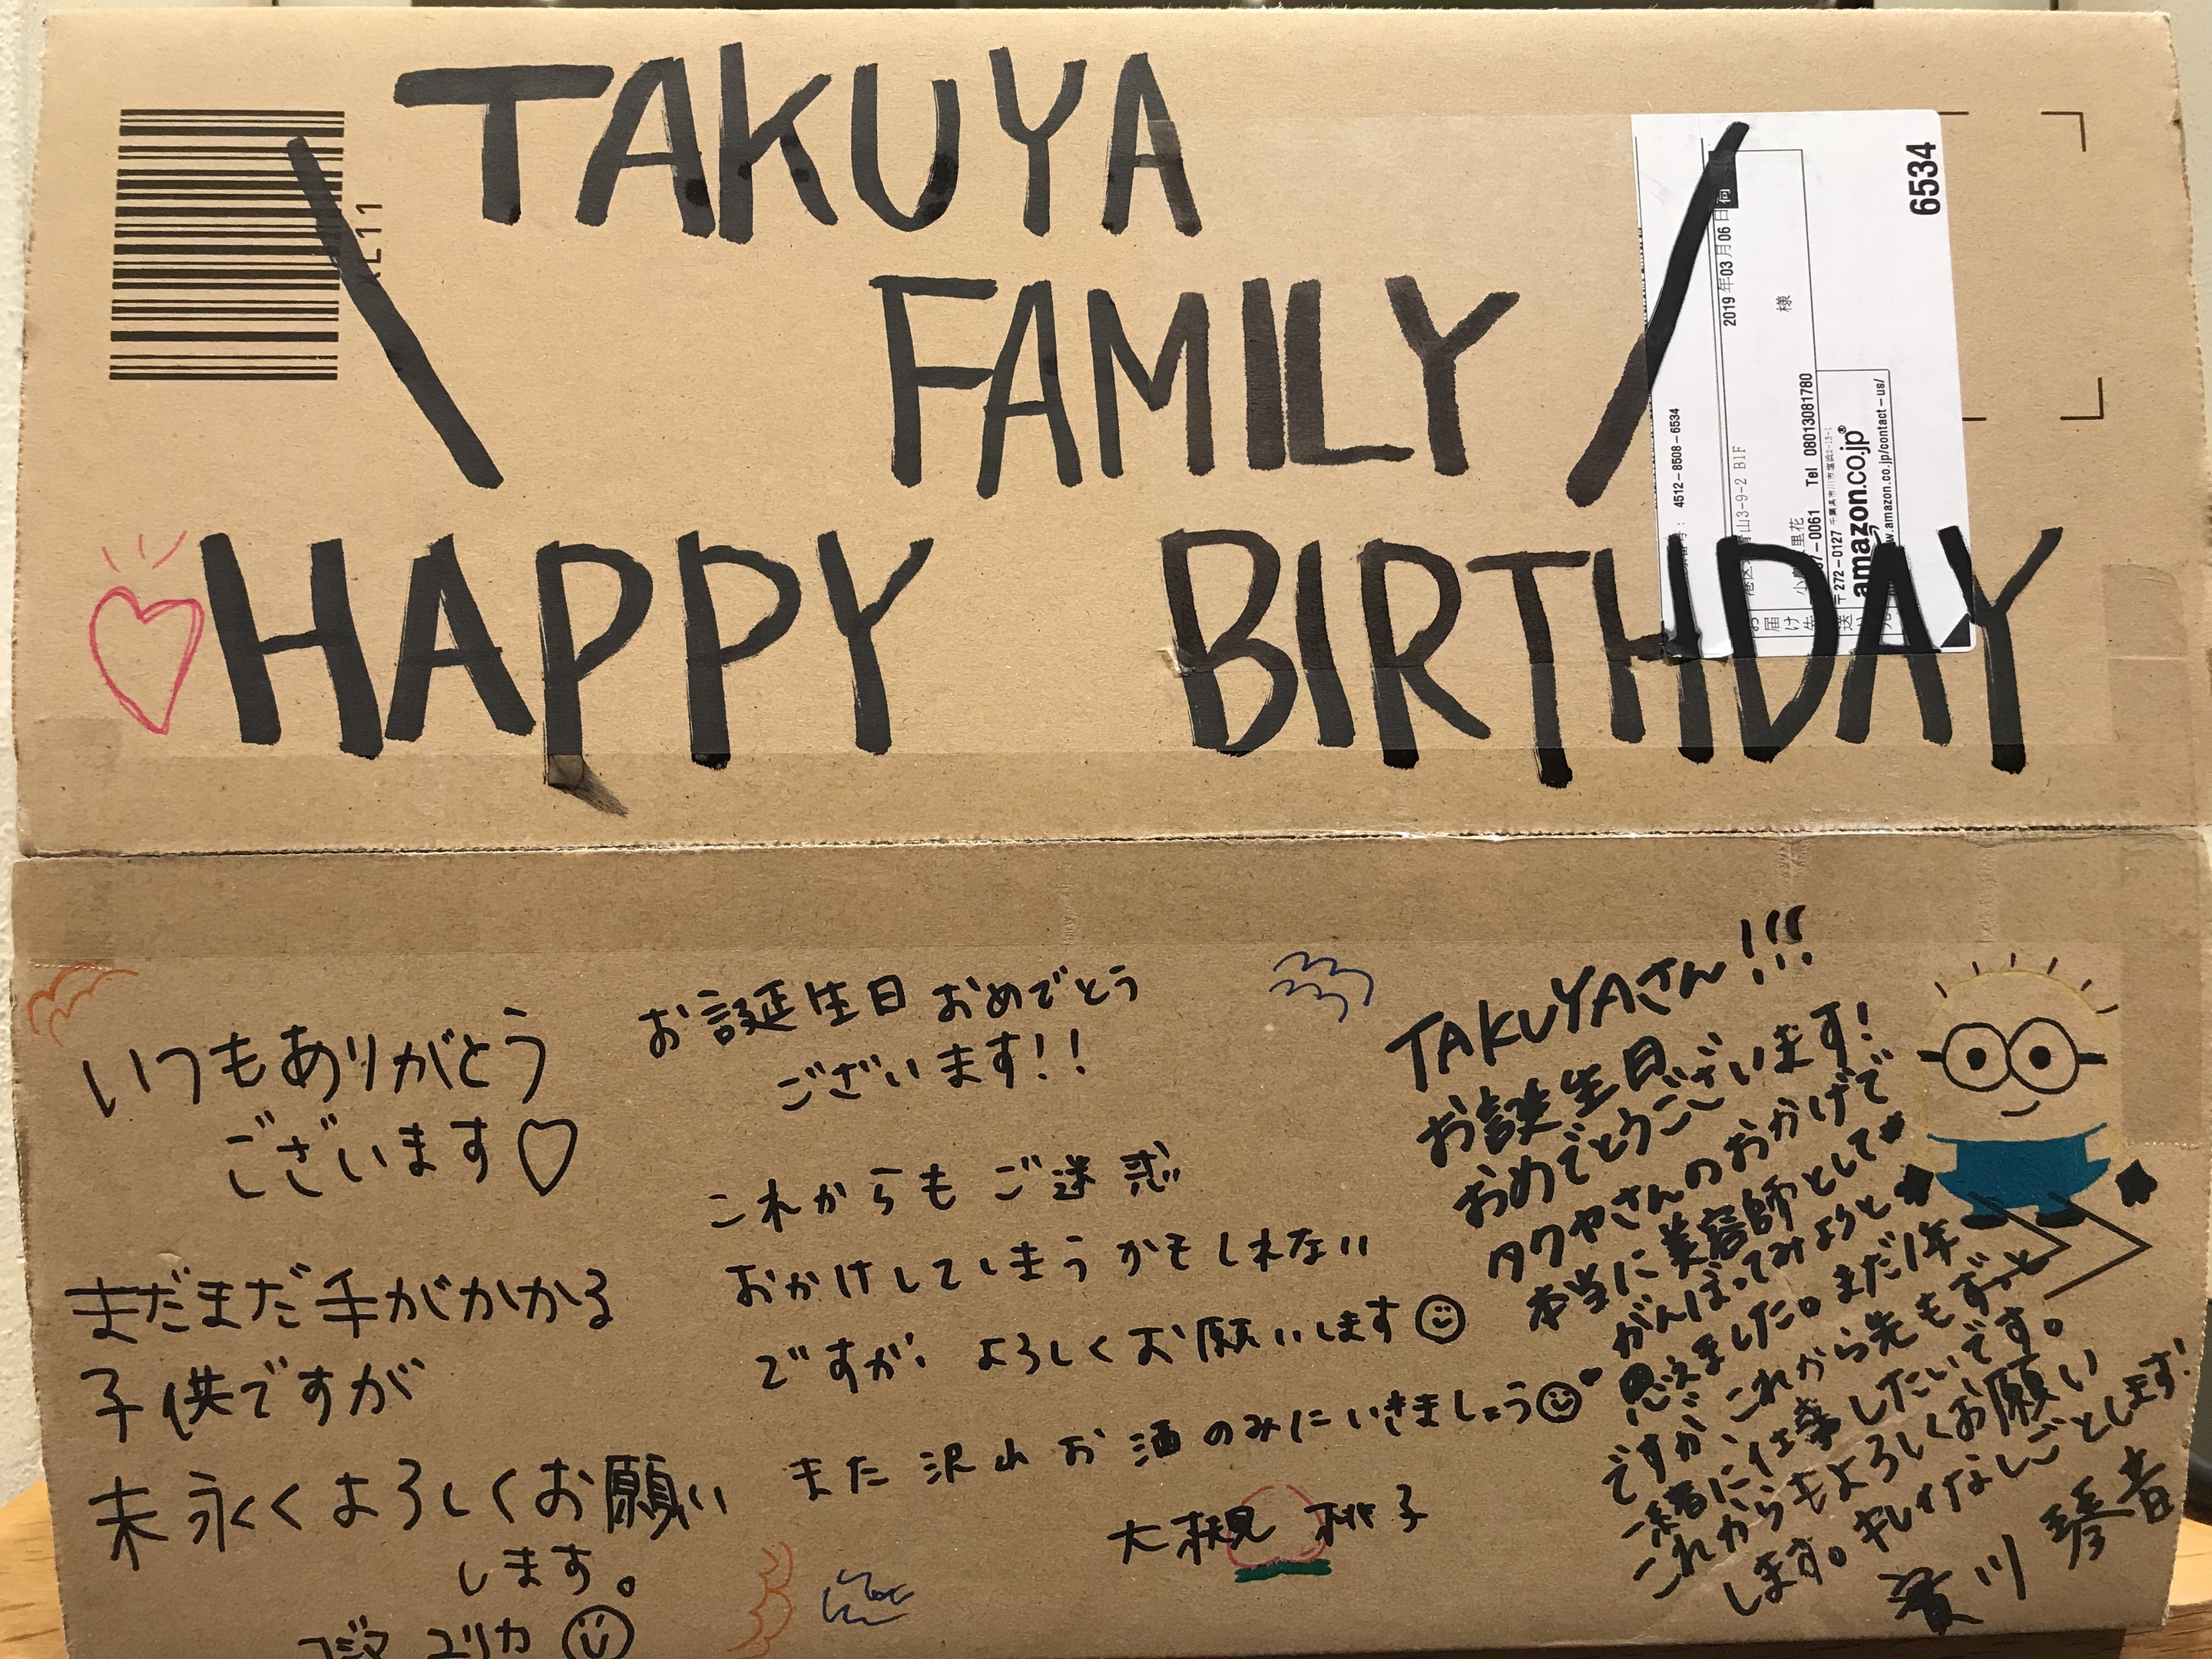 TAKUYA
FAMILY
HAPPY BIRTHDAY
6534
2019年03月06日
様
4512-8508-6534
山3-9-2 B1F
里花
-0061 Tel 08013081780
〒272-0127 千葉県市川市塩浜2-13-1
amazon.co.jp
.amazon.co.jp/contact-us/
お届け先
いつもありがとう
ございます♡
まだまだ手がかかる
子供ですが
末永くよろしくお願い
します。
コジマ ユリカ
お誕生日おめでとう
ございます!!
これからもご迷惑
おかけしてしまうかもしれない
ですが、よろしくお願いします
また沢山お酒のみにいきましょう
大槻 桃子
TAKUYAさん!!!
お誕生日
おめでとうございます!
タクヤさんのおかげで
本当に美容師として
がんばってみようと
思えました。まだ1年
ですが、これから先もずっと
一緒に仕事したいです。
これからもよろしくお願い
します。キレイなしごとします!
川 琴音